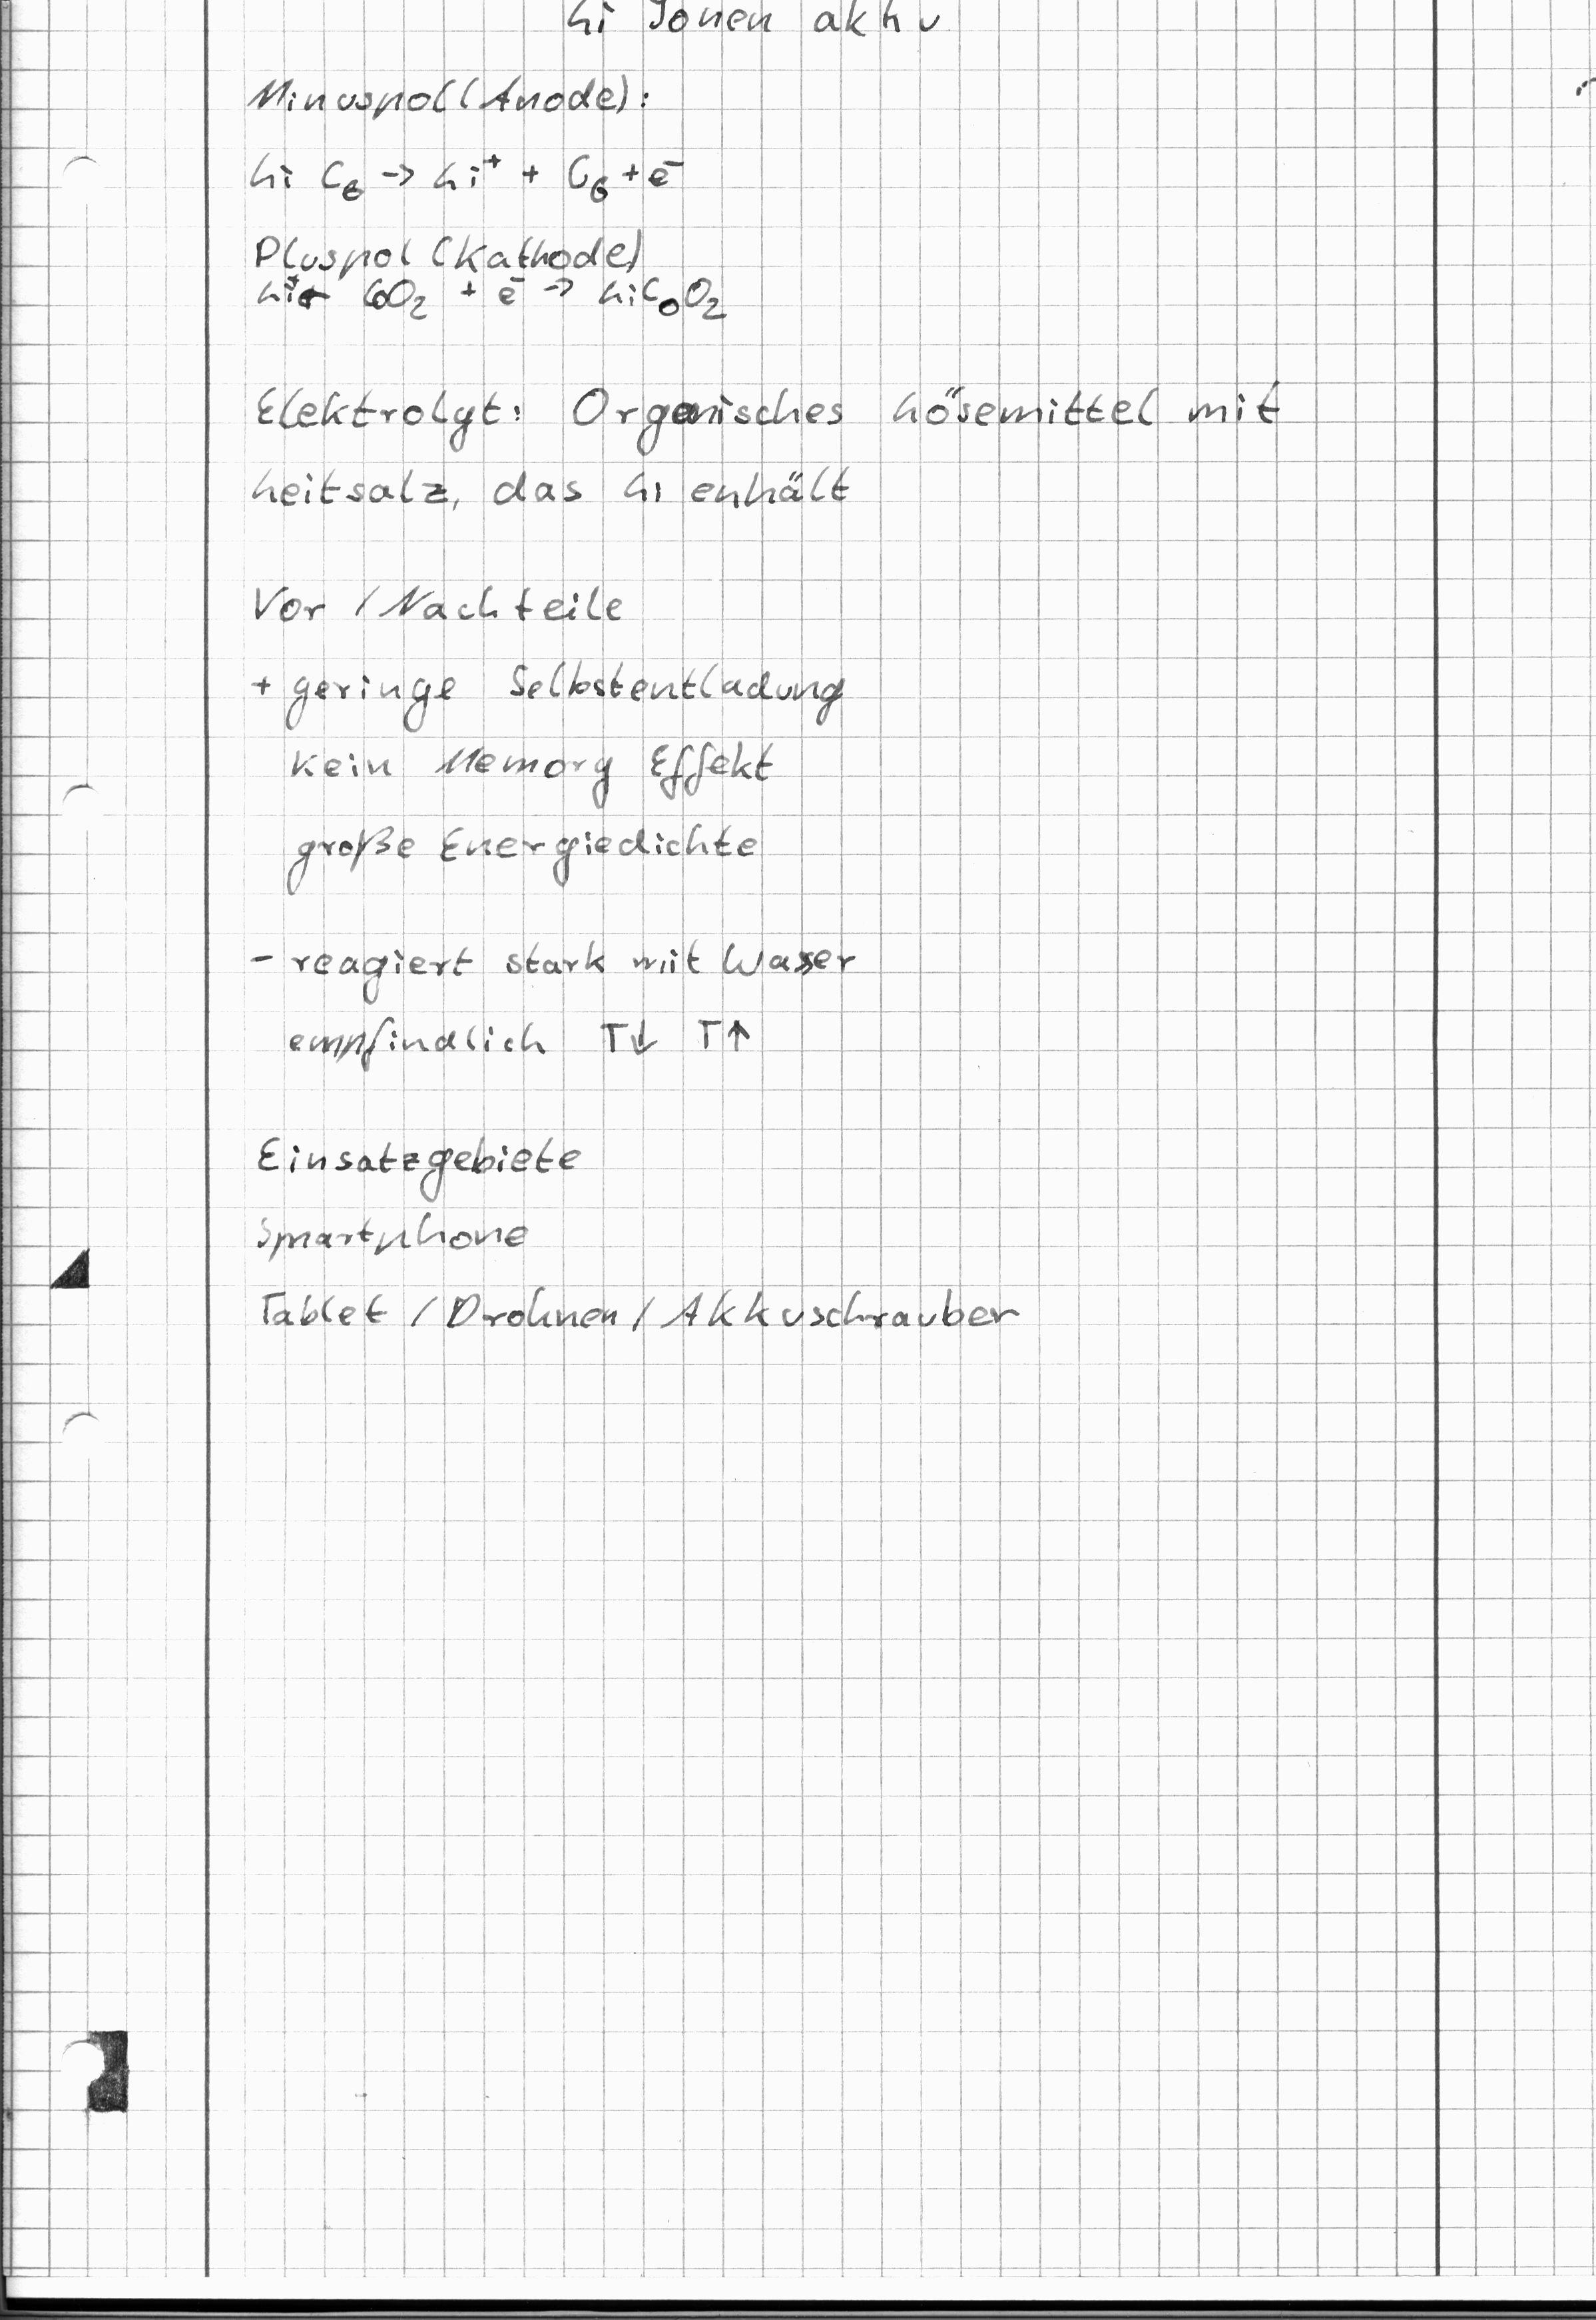 Li Ionen akku
Minuspol (Anode):
Li C₆ → Li⁺ + C₆ + e⁻
Pluspol (Kathode)
Li⁺ + CoO₂ + e⁻ → LiCoO₂
Elektrolyt: Organisches Lösemittel mit
Leitsalz, das Li enhält
Vor / Nachteile
+ geringe Selbstentladung
kein Memory Effekt
große Energiedichte
- reagiert stark mit Wasser
empfindlich T↓ T↑
Einsatzgebiete
Smartphone
Tablet / Drohnen / Akkuschrauber